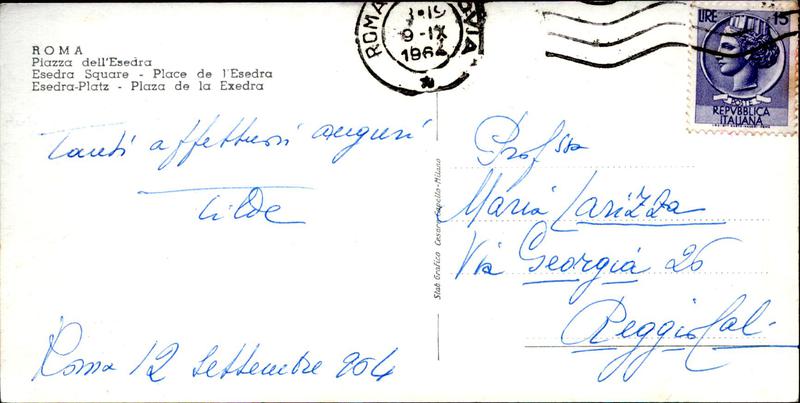 ROMA
Piazza dell'Esedra
Esedra Square - Place de l'Esedra
Esedra-Platz - Plaza de la Exedra
Tanti affettuosi auguri
Tilde
Roma 12 Settembre 964
ROMA
9-IX
196
LIRE 15
POSTE
REPVBBLICA
ITALIANA
Stab Grafica Cesare Capello-Milano
Prof ssa
Maria Larizza
Via Georgia 26
Reggio Cal.